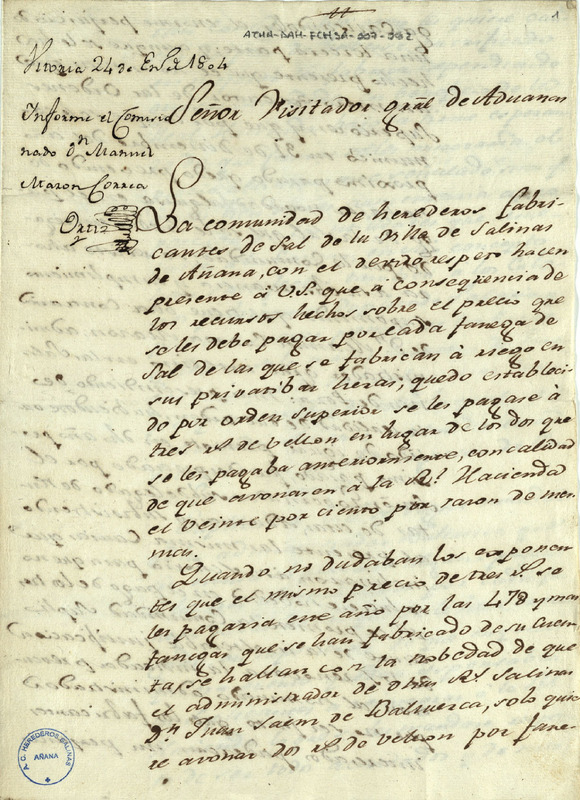 1
ATHA-DAH-FCH36-007-002
Vitoria 24 de En.º de 1804
Informe el Comisio
nado Dn. Manuel
Maron Correa
Ortiz
Señor Visitador gral de Aduanas
La comunidad de herederos fabri-
cantes de Sal de la Villa de Salinas
de Añana, con el devido respeto hacen
presente á V.S. que á consequencia de
los recursos hechos sobre el precio que
se les debe pagar por cada fanega de
Sal de las que se fabrican á riego en
sus privatibas heras, quedo estableci-
do por orden superior se les pagase á
tres rs. de vellon en lugar de los dos que
se les pagaba anteriormente, con calidad
de que avonasen á la Rl. Hacienda
el veinte por ciento por razon de mer-
mas.
Quando no dudaban los exponen
tes que el mismo precio de tres rs. se
les pagaria este año por las 478 y mas
fanegas que se han fabricado de su cuen
ta, se hallan con la nobedad de que
el administrador de dhas Rs. Salinas
Dn. Juan Saem de Balluerca, solo quie
re avonar dos rs. de vellon por fane-
A.C. HEREDEROS SALINAS
AÑANA